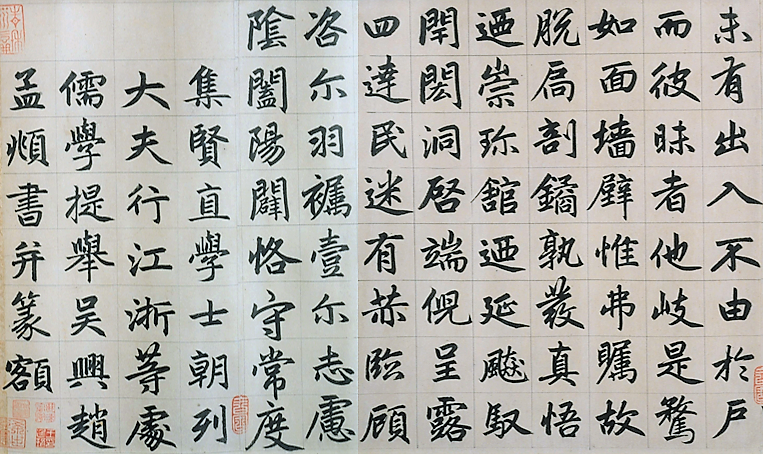 未有出入不由於戶
而彼昧者他岐是騖
如面墙壁惟弗矚故
脫扃剖鐍孰發真悟
迺崇珎舘迺延飈馭
閈閎洞啓端倪呈露
四達民迷有赫臨顧
咨尓羽襹壹尓志慮
陰闔陽闢恪守常度
集賢直學士朝列
大夫行江浙等處
儒學提舉吴興趙
孟頫書并篆額